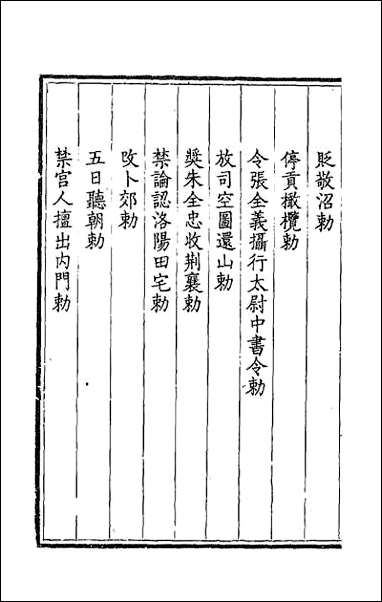 貶敬沼勅
停貢橄欖勅
令張全義攝行太尉中書令勅
放司空圖還山勅
奬朱全忠收荆襄勅
禁論認洛陽田宅勅
改卜郊勅
五日聽朝勅
禁宫人擅出内門勅